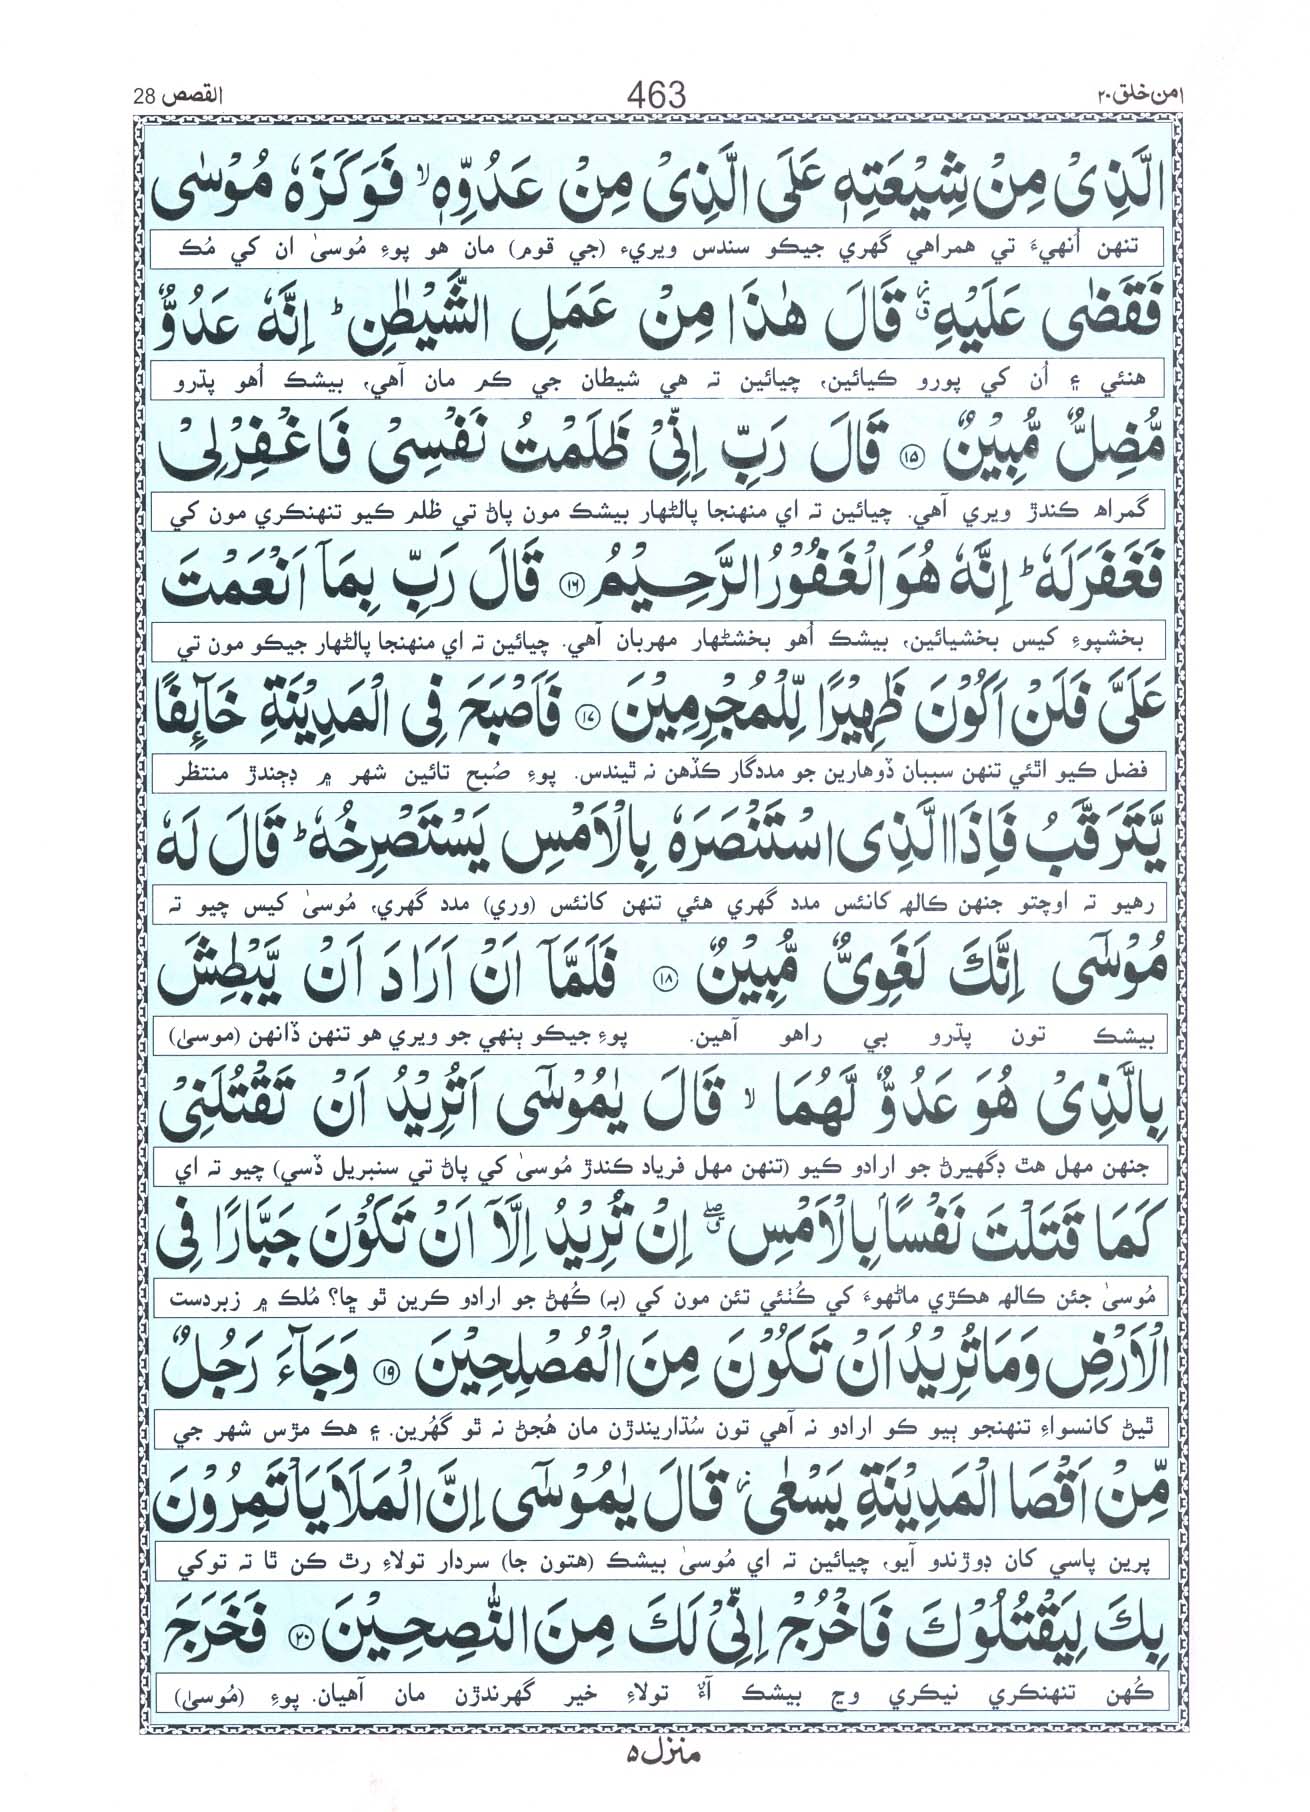 القصص 28
463
امن خلق ٢٠
الَّذِیْ مِنْ شِیْعَتِهٖ عَلَی الَّذِیْ مِنْ عَدُوِّهٖ ۙ فَوَكَزَهٗ مُوْسٰی
تنهن اُنهيءَ تي همراهي گھري جيڪو سندس ويريء (جي قوم) مان هو پوءِ مُوسىٰ ان کي مُڪ
فَقَضٰی عَلَیْهِ ؗ قَالَ هٰذَا مِنْ عَمَلِ الشَّیْطٰنِ ؕ اِنَّهٗ عَدُوٌّ
هنئي ۽ اُن کي پورو ڪيائين، چيائين تہ هي شيطان جي ڪم مان آهي، بيشڪ اُهو پڌرو
مُّضِلٌّ مُّبِیْنٌ ۝۱۵ قَالَ رَبِّ اِنِّیْ ظَلَمْتُ نَفْسِیْ فَاغْفِرْلِیْ
گمراھ ڪندڙ ويري آهي. چيائين تہ اي منهنجا پالڻهار بيشڪ مون پاڻ تي ظلم ڪيو تنهنڪري مون کي
فَغَفَرَلَهٗ ؕ اِنَّهٗ هُوَ الْغَفُوْرُ الرَّحِیْمُ ۝۱۶ قَالَ رَبِّ بِمَاۤ اَنْعَمْتَ
بخشپوءِ کيس بخشيائين، بيشڪ اُهو بخشڻهار مهربان آهي. چيائين تہ اي منهنجا پالڻهار جيڪو مون تي
عَلَیَّ فَلَنْ اَكُوْنَ ظَهِیْرًا لِّلْمُجْرِمِیْنَ ۝۱۷ فَاَصْبَحَ فِی الْمَدِیْنَةِ خَآىِٕفًا
فضل ڪيو اٿئي تنهن سببان ڏوهارين جو مددگار ڪڏهن نہ ٿيندس. پوءِ صُبح تائين شهر ۾ ڊڄندڙ منتظر
یَّتَرَقَّبُ فَاِذَا الَّذِی اسْتَنْصَرَهٗ بِالْاَمْسِ یَسْتَصْرِخُهٗ ؕ قَالَ لَهٗ
رهيو تہ اوچتو جنهن ڪالھ کانئس مدد گھري هئي تنهن کانئس (وري) مدد گھري، مُوسىٰ کيس چيو تہ
مُوْسٰۤی اِنَّكَ لَغَوِیٌّ مُّبِیْنٌ ۝۱۸ فَلَمَّاۤ اَنْ اَرَادَ اَنْ یَّبْطِشَ
بيشڪ تون پڌرو بي راهو آهين. پوءِ جيڪو ٻنهي جو ويري هو تنهن ڏانهن (موسىٰ)
بِالَّذِیْ هُوَ عَدُوٌّ لَّهُمَا ۙ قَالَ یٰمُوْسٰۤی اَتُرِیْدُ اَنْ تَقْتُلَنِیْ
جنهن مهل هٿ ڊگھيرڻ جو ارادو ڪيو (تنهن مهل فرياد ڪندڙ مُوسىٰ کي پاڻ تي سنبريل ڏسي) چيو تہ اي
كَمَا قَتَلْتَ نَفْسًۢا بِالْاَمْسِ ۖۗ اِنْ تُرِیْدُ اِلَّاۤ اَنْ تَكُوْنَ جَبَّارًا فِی
مُوسىٰ جئن ڪالھ هڪڙي ماڻهوءَ کي ڪُٺئي تئن مون کي (بہ) ڪُهڻ جو ارادو ڪرين ٿو ڇا؟ مُلڪ ۾ زبردست
الْاَرْضِ وَمَا تُرِیْدُ اَنْ تَكُوْنَ مِنَ الْمُصْلِحِیْنَ ۝۱۹ وَجَآءَ رَجُلٌ
ٿيڻ کانسواءِ تنهنجو ٻيو ڪو ارادو نہ آهي تون سُڌاريندڙن مان هُجڻ نہ ٿو گھُرين. ۽ هڪ مڙس شهر جي
مِّنْ اَقْصَا الْمَدِیْنَةِ یَسْعٰی ؗ قَالَ یٰمُوْسٰۤی اِنَّ الْمَلَاَ یَاْتَمِرُوْنَ
پرين پاسي کان ڊوڙندو آيو، چيائين تہ اي مُوسىٰ بيشڪ (هتون جا) سردار تولاءِ رٿ ڪن ٿا تہ توکي
بِكَ لِیَقْتُلُوْكَ فَاخْرُجْ اِنِّیْ لَكَ مِنَ النّٰصِحِیْنَ ۝۲۰ فَخَرَجَ
ڪُهن تنهنڪري نيڪري وڃ بيشڪ آءٌ تولاءِ خير گھرندڙن مان آهيان. پوءِ (مُوسىٰ)
منزل ۵